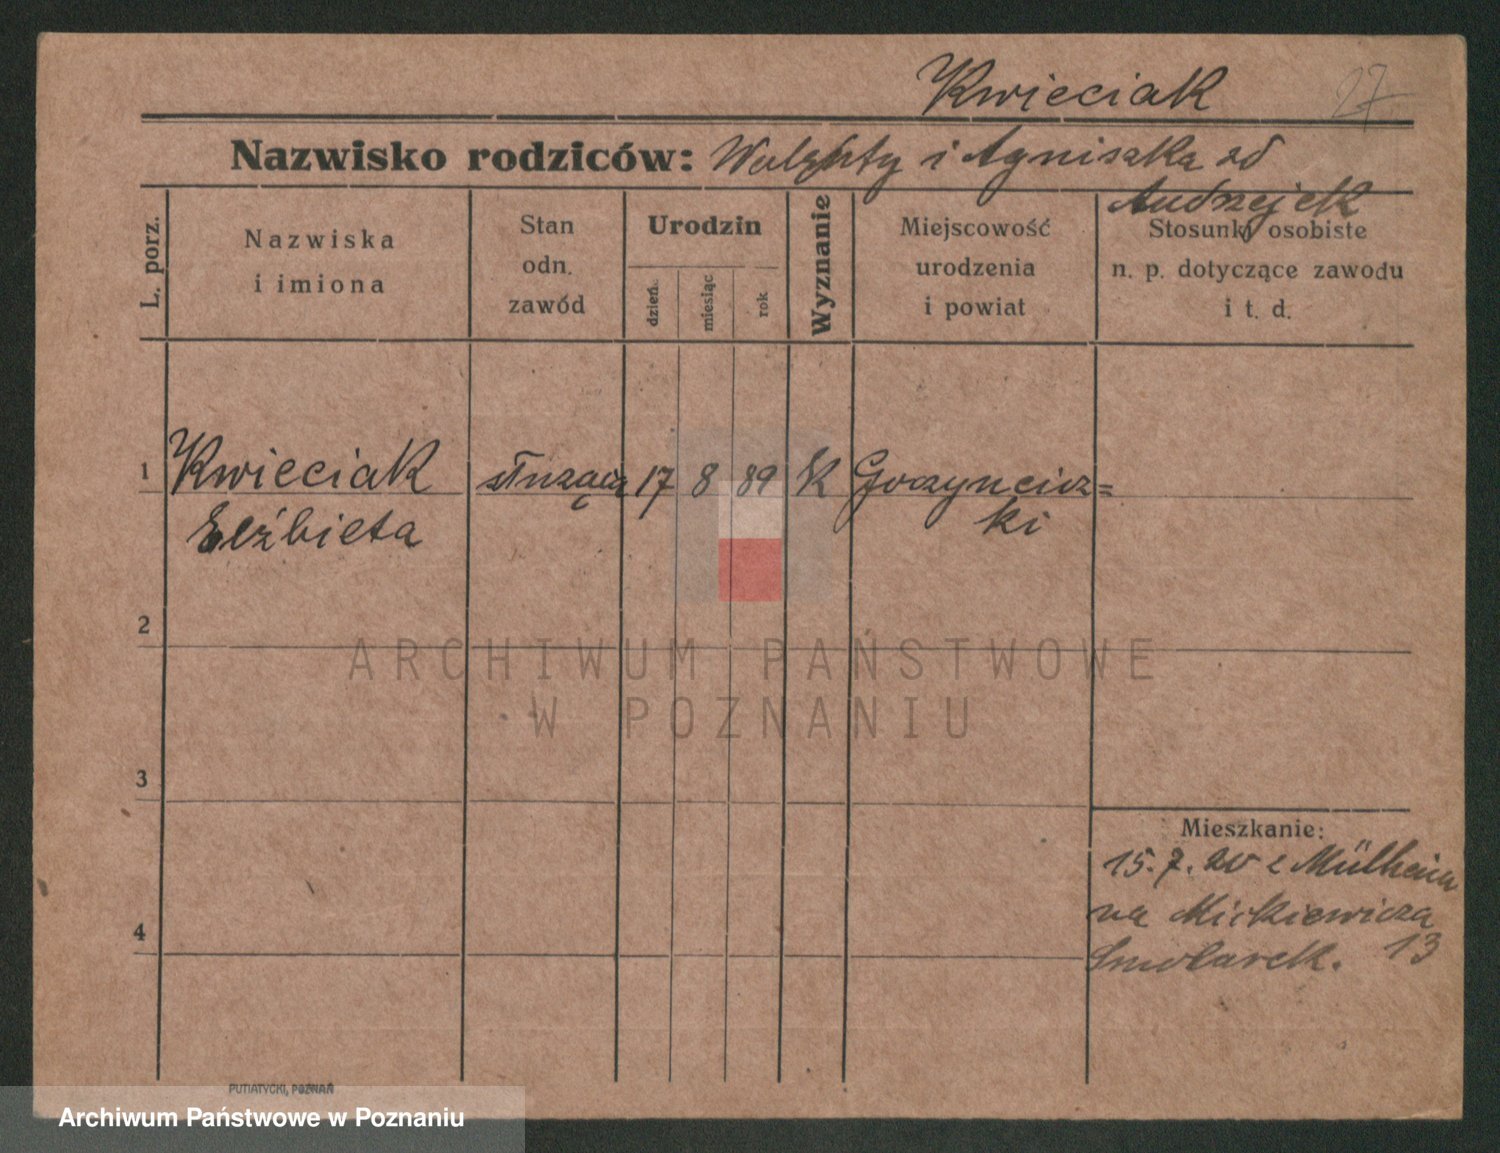 Kwieciak 27
Nazwisko rodziców: Walenty i Agniszka zd
Andrzejek
L. porz.
Nazwiska
i imiona
Stan
odn.
zawód
Urodzin
dzień.
miesiąc
rok
Wyznanie
Miejscowość
urodzenia
i powiat
Stosunki osobiste
n. p. dotyczące zawodu
i t. d.
1 Kwieciak służąca 17 8 89 K
Elżbieta ki
2
ARCHIWUM PAŃSTWOWE
W POZNANIU
3
Mieszkanie:
15.7.20 z Mülheim
na Mickiewicza
13
Smolarek.
4
PUTIATYCKI, POZNAŃ
Archiwum Państwowe w Poznaniu